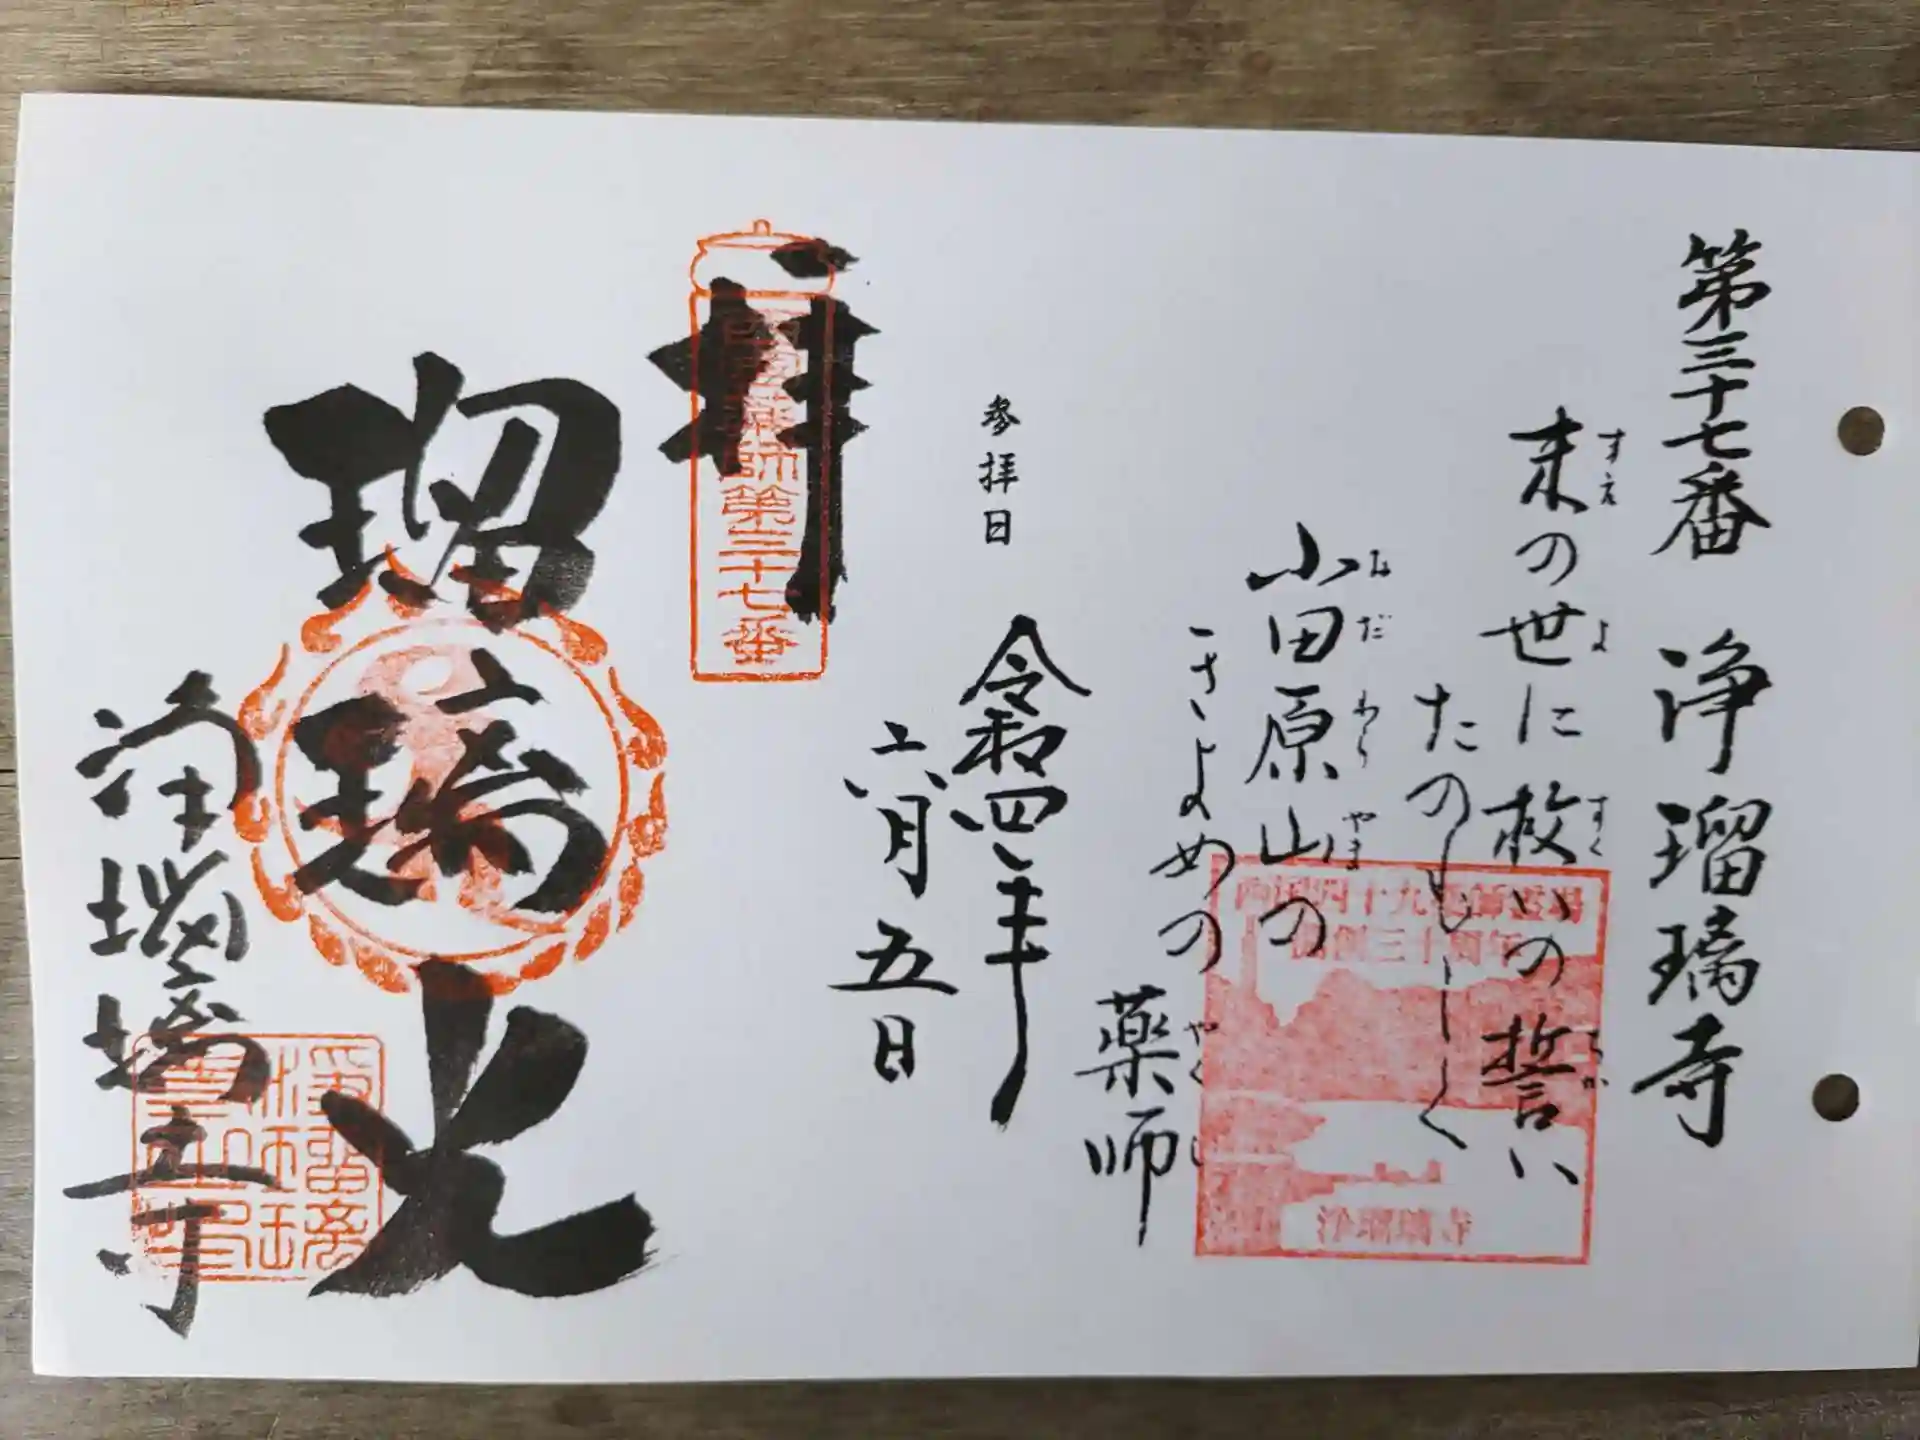 第三十七番 浄瑠璃寺
末の世に救いの誓い
すえ よ すく ちか
たのもしく
小田原山の
おだ わら やま
きよめの
薬師
やくし
西国四十九薬師霊場
開創三十周年
浄瑠璃寺
参拝日
令和四年
六月五日
奉拝
西国薬師第三十七番
瑠璃光
浄瑠璃寺